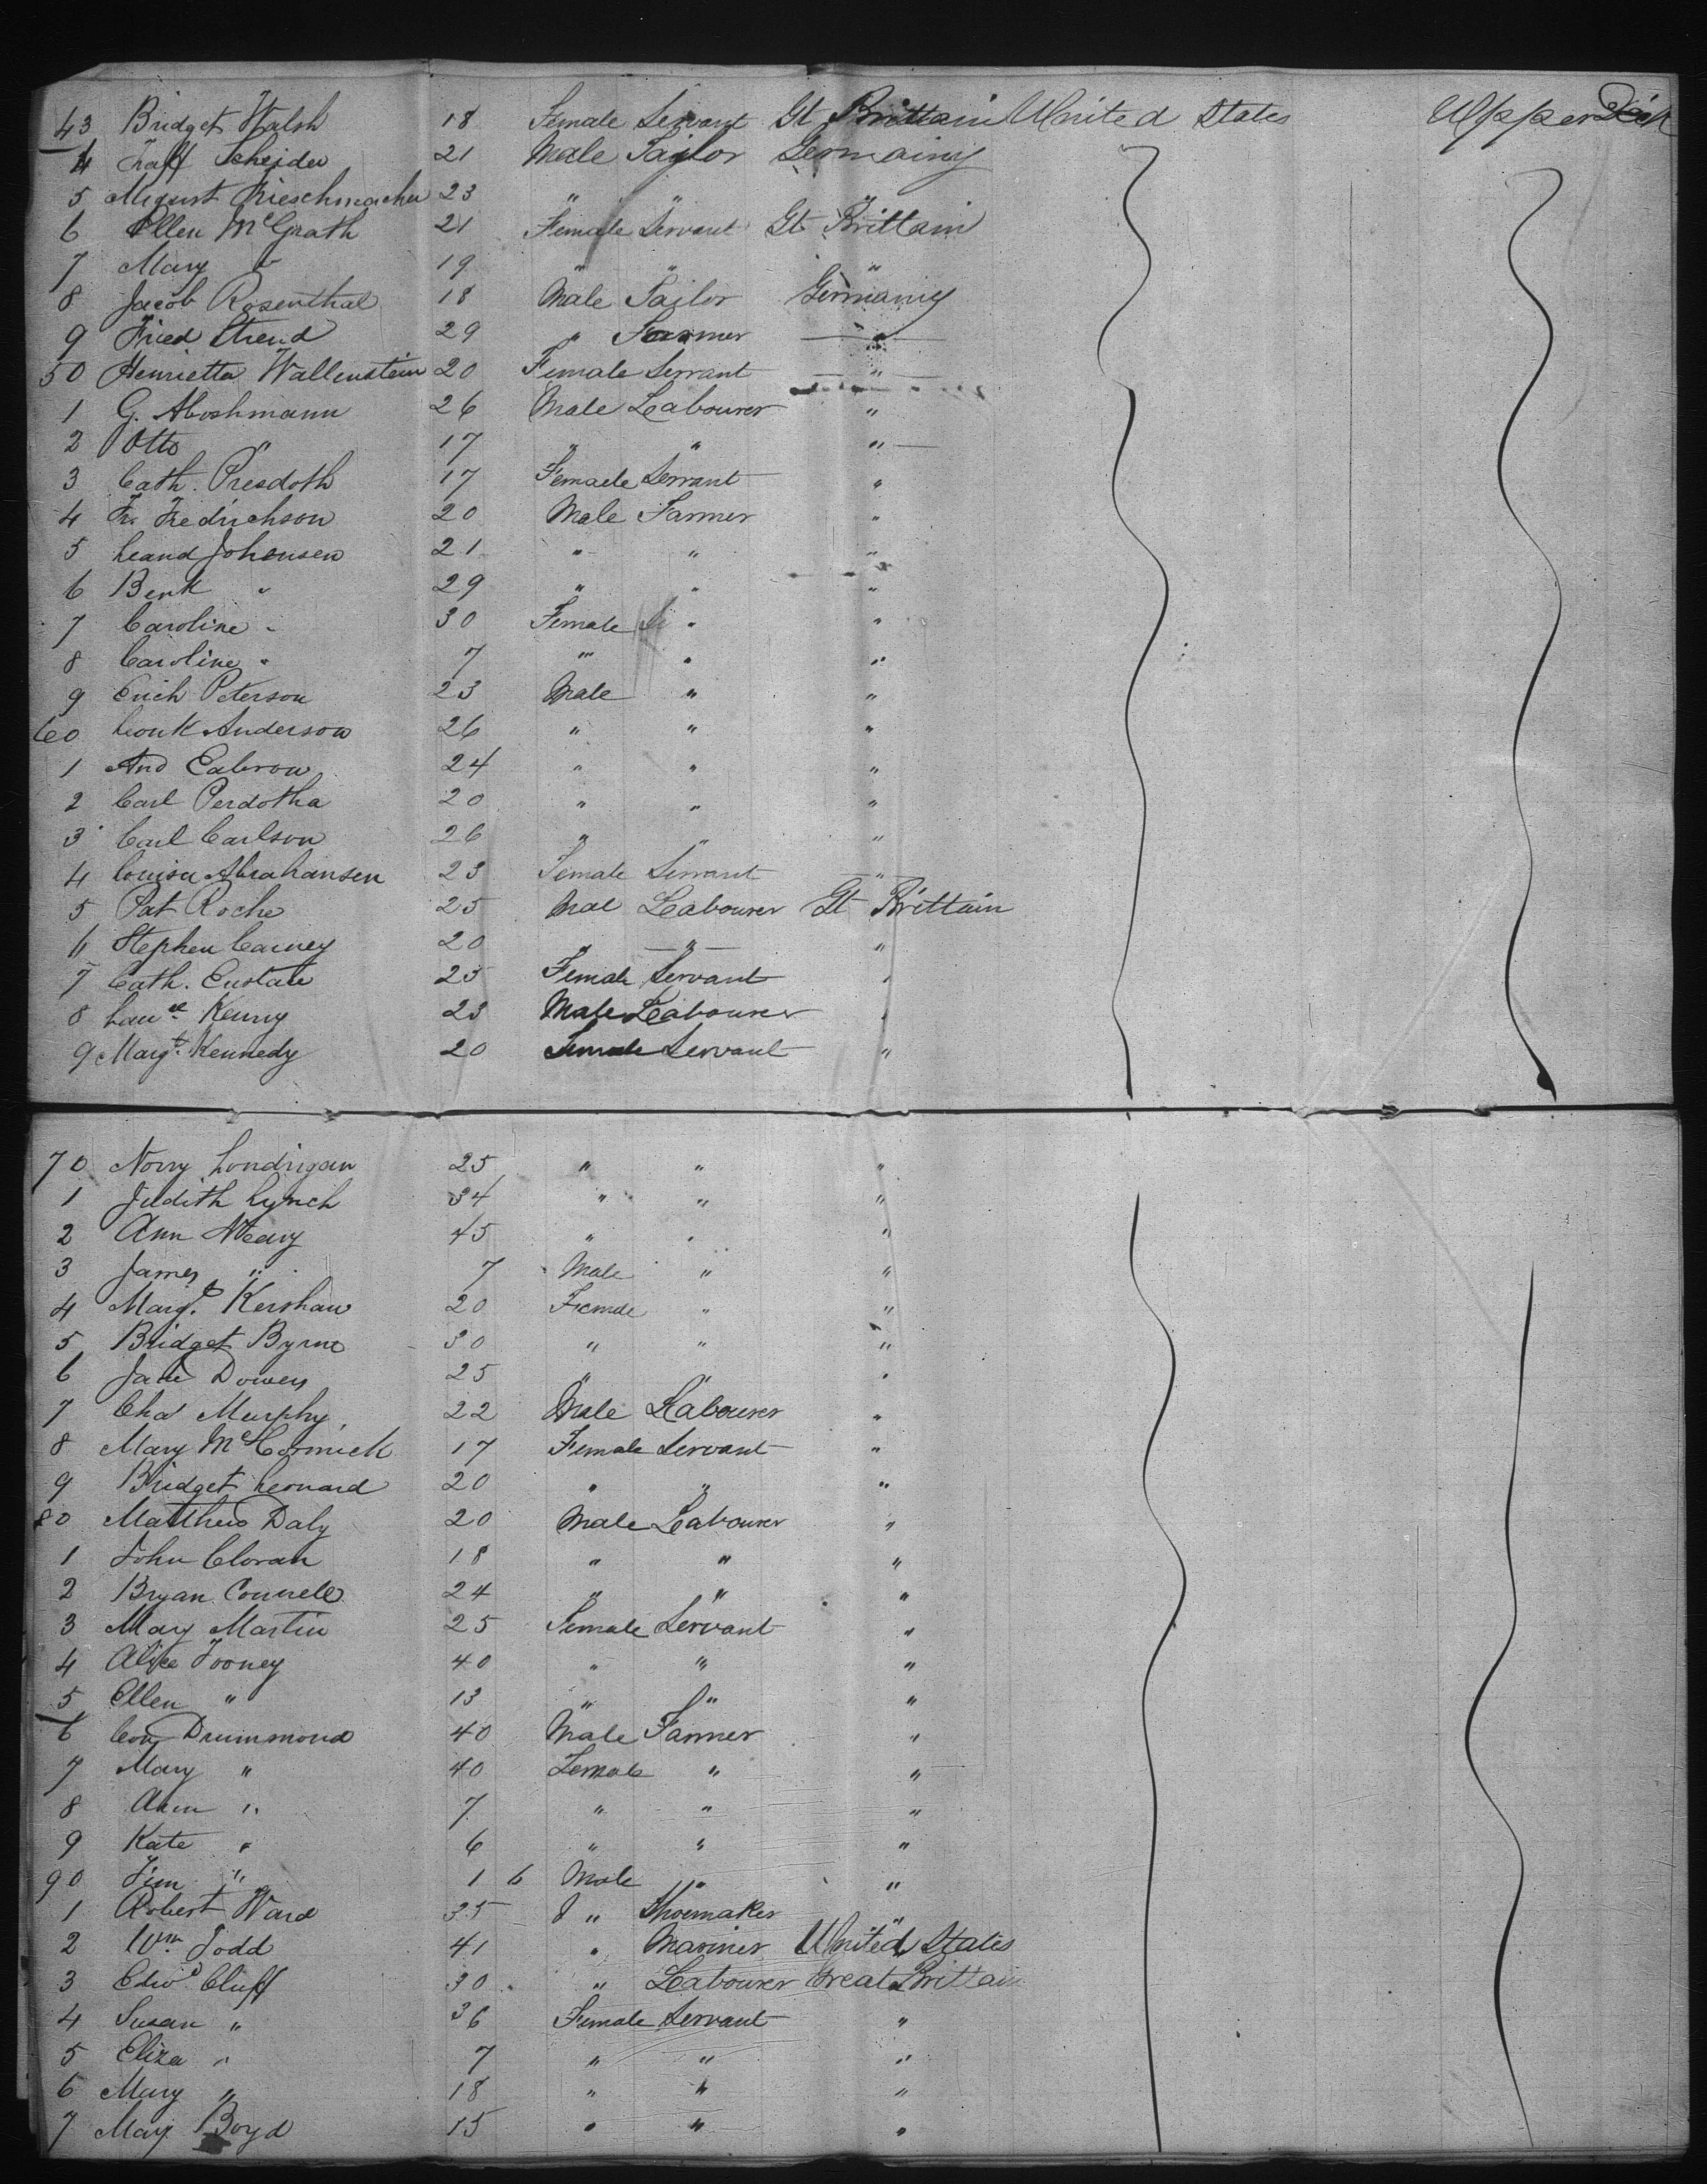 43 Bridget Walsh 18 Female Servant Gt Brittain United States Upper Deck
4 Scheider 21 Male Tailor Germainy
5 August Frieschmacher 23 " " "
6 Ellen McGrath 21 Female Servant Gt Brittain
7 Mary " 19 " " "
8 Jacob Rosenthal 18 Male Tailor Germany
9 Fried Strend 29 " Farmer "
50 Henrietta Wallenstein 20 Female Servant "
1 G. Aboshmann 26 Male Labourer "
2 Otto " 17 " " "
3 Cath. Presdoth 17 Female Servant "
4 Fr. Fredrichson 20 Male Farmer "
5 Leand Johensen 21 " " "
6 Benk " 29 " " "
7 Caroline " 30 Female " "
8 Caroline " 7 " " "
9 Erich Peterson 23 Male " "
60 Anderson 26 " " "
1 And Cabrow 24 " " "
2 Carl Perdotha 20 " " "
3 Carl Carlson 26 " " "
4 Louisa Abrahansen 23 Female Servant "
5 Pat Roche 25 Mal Labourer Gt Brittain
6 Stephen Carney 20 " " "
7 Cath. Eustace 25 Female Servant "
8 Lauce Kenny 23 Male Labourer "
9 Margt. Kennedy 20 Female Servant "
70 Norry Londrigan 25 " " "
1 Judith Lynch 34 " " "
2 Ann Neary 45 " " "
3 James " 7 Male " "
4 Margt. Kershaw 20 Female " "
5 Bridget Byrne 30 " " "
6 Jane Dowers 25 " " "
7 Chas Murphy 22 Male Labourer "
8 Mary McCormick 17 Female Servant "
9 Bridget Leonard 20 " " "
80 Matthew Daly 20 Male Labourer "
1 John Cloran 18 " " "
2 Bryan Connell 24 " " "
3 Mary Martin 25 Female Servant "
4 Alice Tooney 40 " " "
5 Ellen " 13 " " "
6 Con Drummond 40 Male Farmer "
7 Mary " 40 Female " "
8 Ann " 7 " " "
9 Kate " 6 " " "
90 Tim " 1 6 Male " "
1 Robert Ward 35 " Shoemaker "
2 Wm Todd 41 " Mariner United States
3 Edwd Cluff 30 " Labourer Great Brittain
4 Susan " 36 Female Servant "
5 Eliza " 7 " " "
6 Mary " 18 " " "
7 Mary Boyd 15 " " "